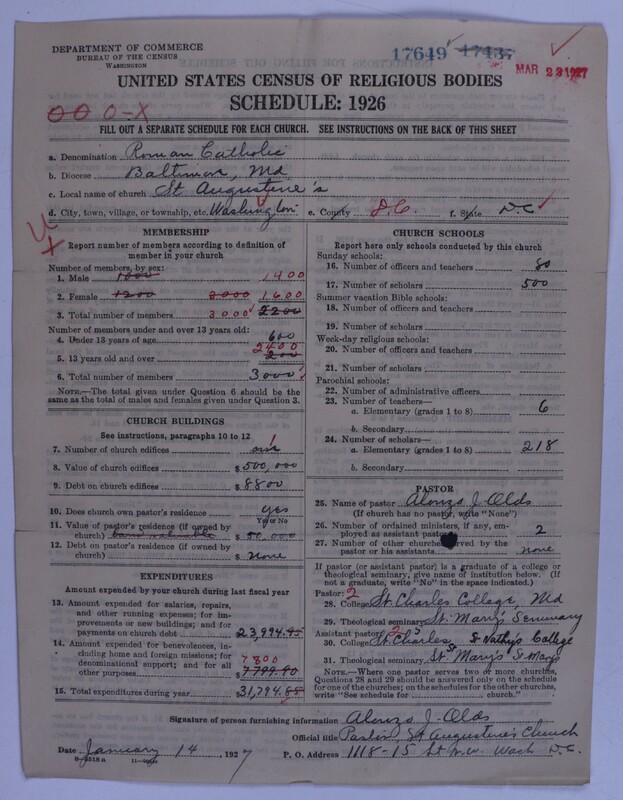 DEPARTMENT OF COMMERCE
BUREAU OF THE CENSUS
WASHINGTON
17649 17437
MAR 23 1927
UNITED STATES CENSUS OF RELIGIOUS BODIES
SCHEDULE: 1926
0 0 0-X
FILL OUT A SEPARATE SCHEDULE FOR EACH CHURCH. SEE INSTRUCTIONS ON THE BACK OF THIS SHEET
a. Denomination Roman Catholic
b. Diocese Baltimore, Md
c. Local name of church St Augustine's
d. City, town, village, or township, etc. Washington e. County D.C. f. State D.C.
MEMBERSHIP
Report number of members according to definition of
member in your church
Number of members, by sex:
1. Male 1000 1400
2. Female 1200 2000 1600
3. Total number of members 3000 2200
Number of members under and over 13 years old:
4. Under 13 years of age 600
2400
5. 13 years old and over 200
6. Total number of members 3000
NOTE.—The total given under Question 6 should be the
same as the total of males and females given under Question 3.
CHURCH BUILDINGS
See instructions, paragraphs 10 to 12
7. Number of church edifices one 1
8. Value of church edifices $500,000
9. Debt on church edifices $8800
10. Does church own pastor's residence yes
Yes or No
11. Value of pastor's residence (if owned by
church) $50,000
12. Debt on pastor's residence (if owned by
church) $none
EXPENDITURES
Amount expended by your church during last fiscal year
13. Amount expended for salaries, repairs,
and other running expenses; for im-
provements or new buildings; and for
payments on church debt $23,994.95
14. Amount expended for benevolences, in-
cluding home and foreign missions; for
denominational support; and for all
other purposes 7800 $7799.90
15. Total expenditures during year $31,794.85
CHURCH SCHOOLS
Report here only schools conducted by this church
Sunday schools:
16. Number of officers and teachers 80
17. Number of scholars 500
Summer vacation Bible schools:
18. Number of officers and teachers
19. Number of scholars
Week-day religious schools:
20. Number of officers and teachers
21. Number of scholars
Parochial schools:
22. Number of administrative officers
23. Number of teachers—
a. Elementary (grades 1 to 8) 6
b. Secondary
24. Number of scholars—
a. Elementary (grades 1 to 8) 218
b. Secondary
PASTOR
25. Name of pastor Alonzo J. Olds
(If church has no pastor, write "None")
26. Number of ordained ministers, if any, em-
ployed as assistant pastors 2
27. Number of other churches served by the
pastor or his assistants none
If pastor (or assistant pastor) is a graduate of a college or
theological seminary, give name of institution below. (If
not a graduate, write "No" in the space indicated.)
Pastor: 2
28. College St Charles College, Md
29. Theological seminary St. Mary's Seminary
Assistant pastor: 2
30. College St Charles St Nathy's College
31. Theological seminary St Mary's St Mary's
NOTE.—Where one pastor serves two or more churches,
Questions 28 and 29 should be answered only on the schedule
for one of the churches; on the schedules for the other churches,
write "See schedule for church."
Signature of person furnishing information Alonzo J. Olds
Official title Pastor, St Augustine's Church
Date January 14, 1927 P. O. Address 1118-15 St N.W. Wash D.C.
8-8518a